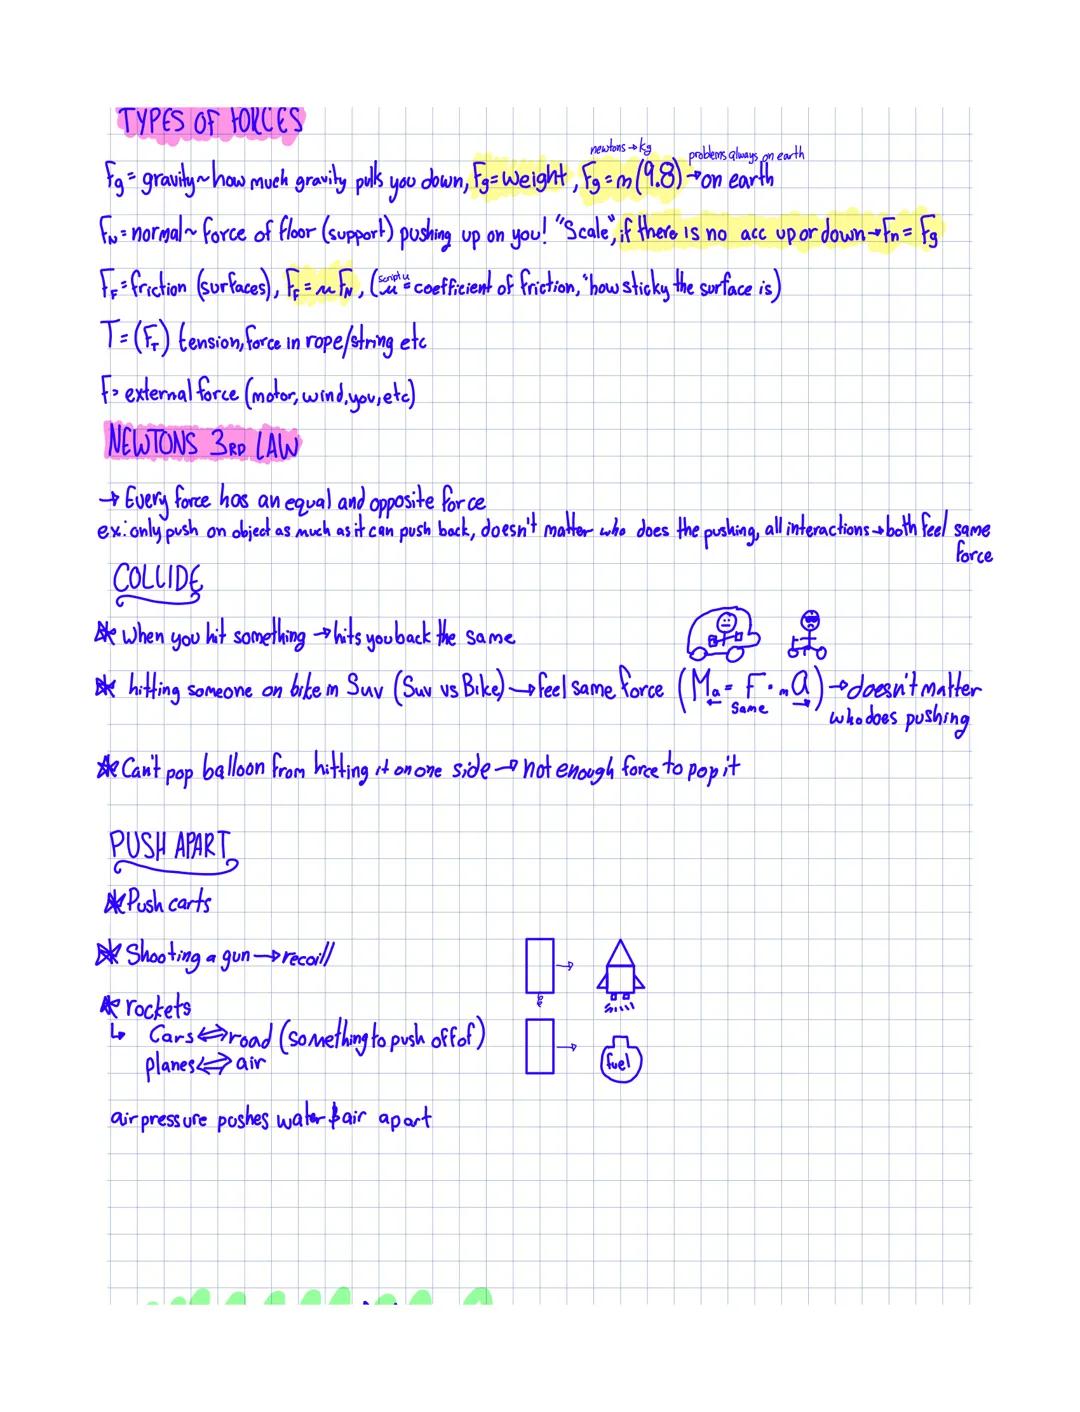 TYPES OF FORCES
newtons → kg
problems always on earth
Fg = gravity ~ how much gravity pulls you down, Fg = weight, Fg = m(9.8) → on earth
FN = normal ~ force of floor (support) pushing up on you! "Scale", if there is no acc up or down → Fn = Fg
script u
FF = friction (surfaces), FF = µ FN, (µ = coefficient of friction, "how sticky the surface is)
T = (FT) tension, force in rope/string etc
F = external force (motor, wind, you, etc)
NEWTONS 3RD LAW
→ Every force has an equal and opposite force
ex: only push on object as much as it can push back, doesn't matter who does the pushing, all interactions → both feel same
force
COLLIDE
* when you hit something → hits you back the same
* hitting someone on bike in Suv (Suv vs Bike) → feel same force (Ma = F · mA) → doesn't matter
same
who does pushing
* Can't pop balloon from hitting it on one side → not enough force to pop it
PUSH APART
* Push carts
* Shooting a gun → recoil
* rockets
↳ Cars ⇔ road (something to push off of)
planes ⇔ air
fuel
air pressure pushes water & air apart